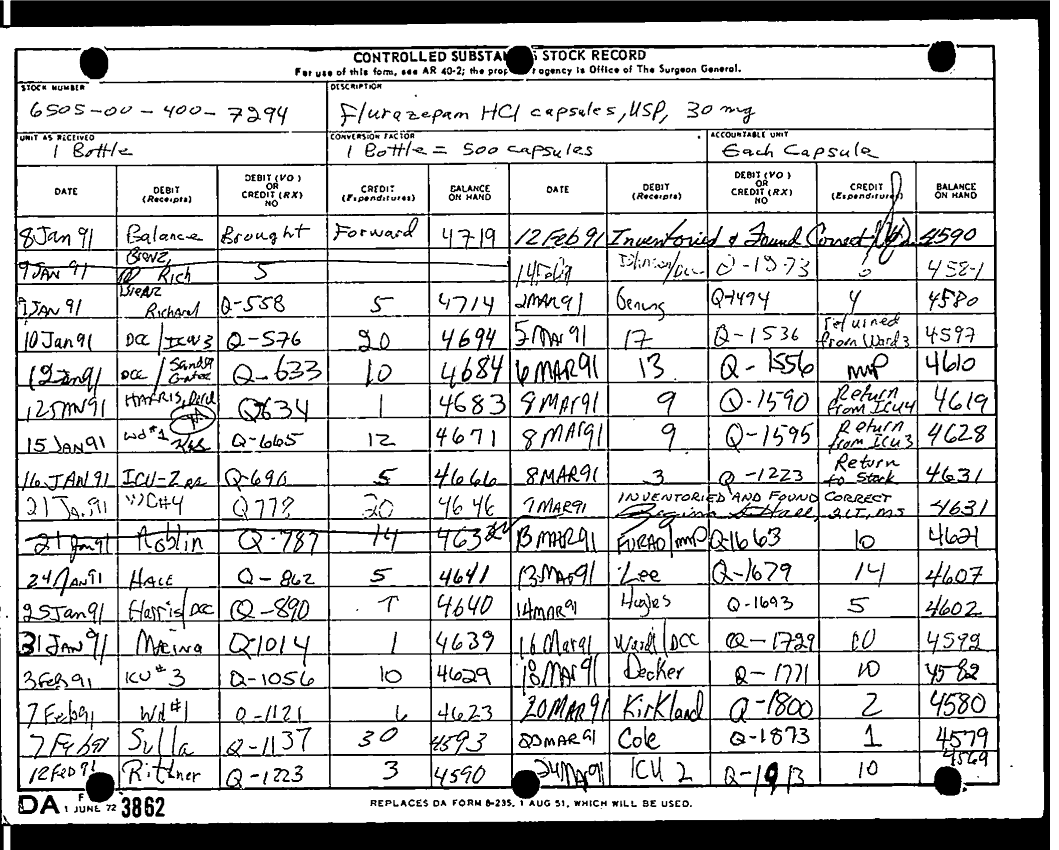 CONTROLLED SUBSTAN S STOCK RECORD
For use of this form, see AR 40-2; the prop t agency is Office of The Surgeon General.
STOCK NUMBER DESCRIPTION
6505-00-400-7294 Flurazepam HCl capsules, USP, 30 mg
UNIT AS RECEIVED CONVERSION FACTOR ACCOUNTABLE UNIT
1 Bottle 1 Bottle = 500 capsules Each Capsule
DATE DEBIT (Receipts) DEBIT (VO) OR CREDIT (RX) NO CREDIT (Expenditures) BALANCE ON HAND DATE DEBIT (Receipts) DEBIT (VO) OR CREDIT (RX) NO CREDIT (Expenditures) BALANCE ON HAND
8 Jan 91 Balance Brought Forward 4719 12 Feb 91 Inventoried & Found Correct 4590
9 JAN 91 Rich 5 14 Feb 91 /DCC 4581
9 JAN 91 Richard Q-558 5 4714 2 MAR 91 Genung Q-1494 4 4580
10 Jan 91 DCC/ICW3 Q-576 20 4694 5 Mar 91 17 Q-1536 returned from Ward 3 4597
12 Jan 91 DCC/ Q-633 10 4684 6 MAR 91 13 Q-1556 MMP 4610
12 JAN 91 HARRIS, Q634 1 4683 8 Mar 91 9 Q-1590 Return from ICU4 4619
15 JAN 91 Wd #1 Q-665 12 4671 8 MAR 91 9 Q-1595 Return from ICU3 4628
16 JAN 91 ICU-2 Q-696 5 4666 8 MAR 91 3 Q-1223 Return to Stock 4631
21 Jan 91 #4 Q778 20 4646 9 MAR 91 INVENTORIED AND FOUND CORRECT 2LT, MS 4631
21 Jan 91 Roblin Q-787 14 4632 13 MAR 91 FURAO/MMP Q-1663 10 4621
24 JAN 91 HALE Q-862 5 4641 13 Mar 91 Lee Q-1679 14 4607
25 Jan 91 Harris/DCC Q-890 1 4640 14 MAR 91 Hughes Q-1693 5 4602
31 JAN 91 Q1014 1 4639 16 Mar 91 Ward/DCC Q-1729 10 4592
3 Feb 91 ICU #3 Q-1056 10 4629 18 Mar 91 Decker Q-1771 10 4582
7 Feb 91 Wd #1 Q-1121 6 4623 20 MAR 91 Kirkland Q-1800 2 4580
7 Feb 91 Sulla Q-1137 30 4593 20 MAR 91 Cole Q-1873 1 4579
12 Feb 91 Rittner Q-1223 3 4590 24 Mar 91 ICU 2 Q-1913 10 4569
DA F 1 JUNE 72 3862 REPLACES DA FORM 8-235, 1 AUG 51, WHICH WILL BE USED.